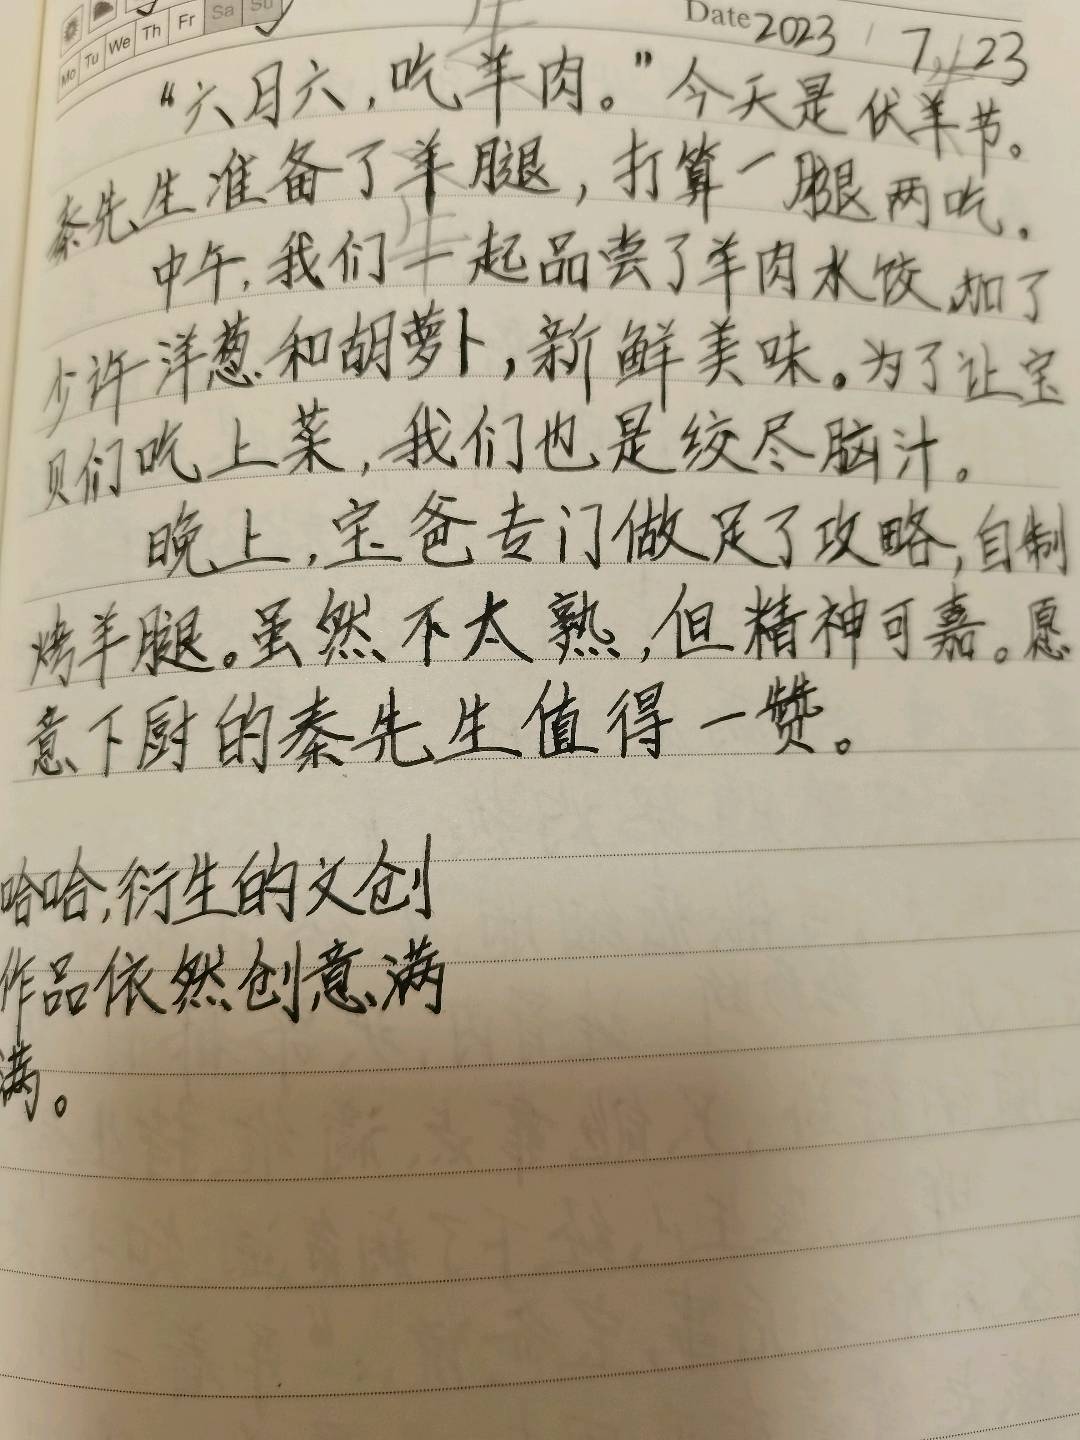 Mo Tu We Th Fr Sa Su
Date 2023 / 7 / 23
“六月六，吃羊肉。”今天是伏羊节。
秦先生准备了羊腿，打算一腿两吃。
中午，我们一起品尝了羊肉水饺，加了
少许洋葱和胡萝卜，新鲜美味。为了让宝
贝们吃上菜，我们也是绞尽脑汁。
晚上，宝爸专门做足了攻略，自制
烤羊腿。虽然不太熟，但精神可嘉。愿
意下厨的秦先生值得一赞。
哈哈，衍生的文创
作品依然创意满
满。